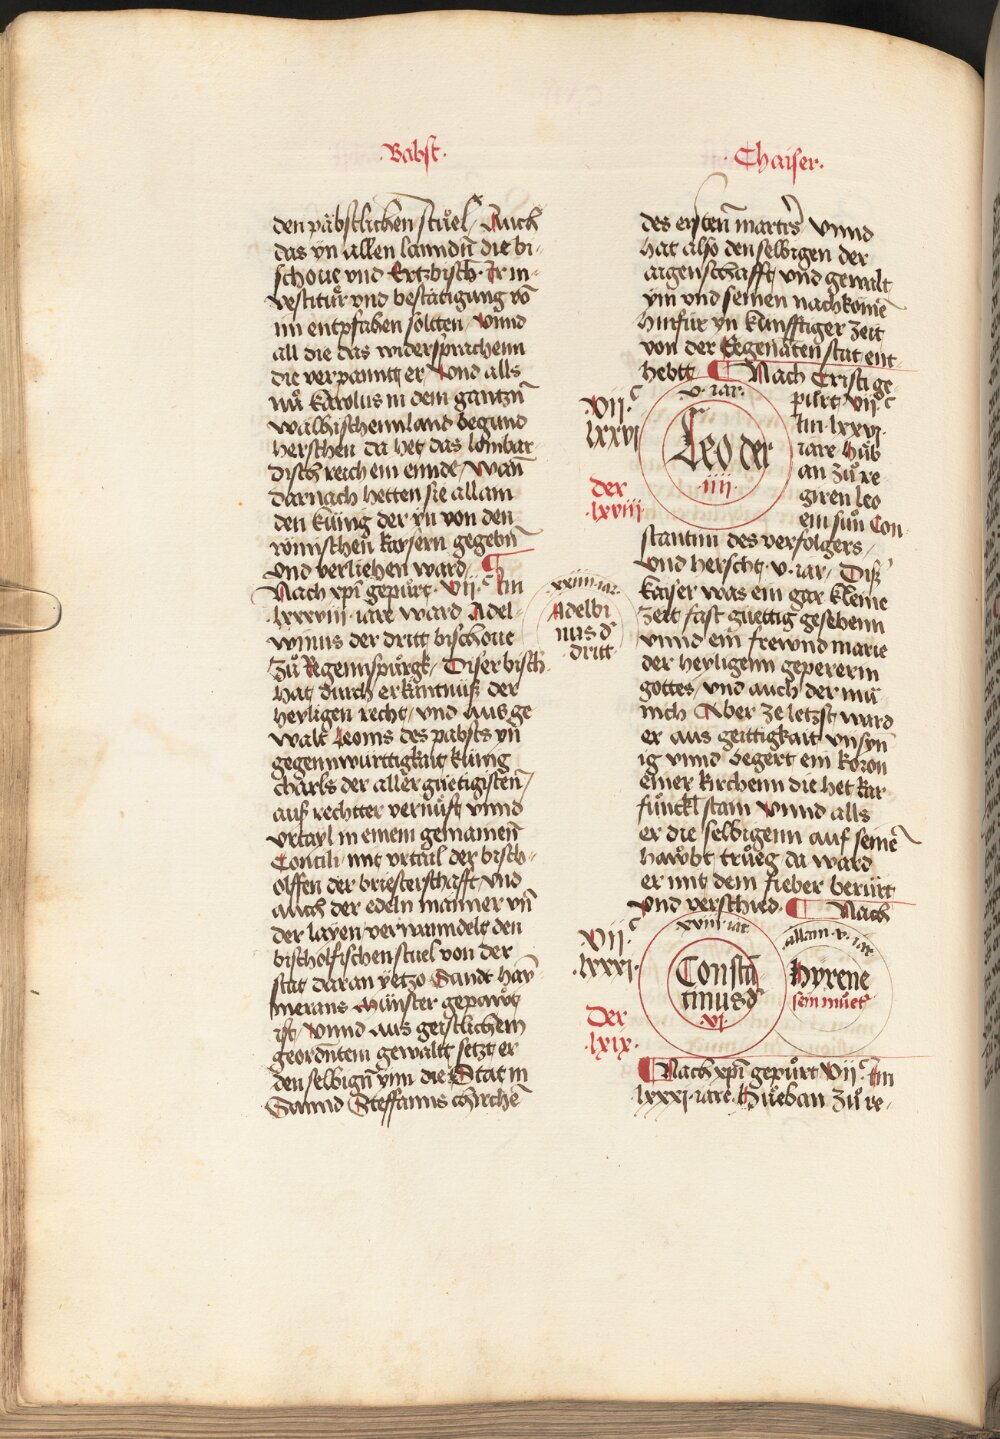 ·Babst·
den päbstlichen stůel / Auch
das yn allen lanndn̄ die bi-
schoue vnd Ertzbisch· Ir in-
vestitůr vnd bestätigung vō
im entpfahen soltten / Vnnd
all die das widersprachenn
die verpannt er / Vnd alls
nů Karolus in dem gantzn̄
wälhischenn land begund
herschen da het das lombar
disch reich ein ennde / Wan̄
darnach hetten sie allain
den künig der yn von den
römischen kaysern gegebn̄
vnd verliehen ward / ¶
Nach xp̄i gepůrt· Vii·ᶜ Im
lxxxviii· iare ward Adel-
winus der dritt bischoue
zů Regennspůrgk / Diser bisch·
hat durch erkantnüß der
heyligen recht / vnd aus ge
walt Leonis des pabsts yn̄
gegennwürttigkait künig
charls der aller güetigisten̄ /
auß rechtter vernůft vnnd
vrtayl in einem gemainen̄
Concili· mit vrtail der bisch-
olffen der briesterschafft / vnd
auch der edeln männer vn̄
der layen verwanndelt den
bischolfischen stuel von der
stat daran yetzo Sandt haȳ
merans Münster gepawt
ist / Vnnd aus geistlichem
geordnntem gewaltt setzt er
den selbign̄ ynn die Stat in
Sannd Steffanns chirchē
·xxiiii· iar·
Adelbi
nus dˀ
dritt
·Chaiser·
des ersten̄ martrˀs Vnnd
hat also den selbigen der
aigenschafft / vnd gewalt
ym vnd seinen nachkomē
hinfür yn künfftiger zeit
von der Regenäten stat ent
hebtt ¶ Nach Cristi ge
půrt· vii·ᶜ
Im· lxxvi·
iare hůb
an zů re
giren Leo
ein sůn Con
stantini des verfolgers /
vnd herscht· v· iar / Diß
kaiser was ein gar kleine
zeit fast güettig gesehenn
vnnd ein frewnd marie
der heyligenn gepererin
gottes / vnd auch der mü
nich Aber ze letzst ward
er aus geittigkait vnsyn̄
ig vnnd begert ein koron
einer kirchenn die het kar
fünckl stain Vnnd alls
er die selbigenn auf seinē
hawbt trůeg da ward
er mit dem fieber berürt
vnd verschied· ¶ Nach
·Vii·ᶜ
lxxvi
der
·lxviii
·v· iar·
Leo der
·iiii·
·Vii·ᶜ
·lxxxi·
Der
·lxix·
xviii· iar
Constā
tinus dˀ
·vi·
allain· v· iar
Hyrene
sein můetˀ
¶ Nach xp̄i gepůrt Vii·ᶜ Im
lxxxi· iare Hůeb an zů re-